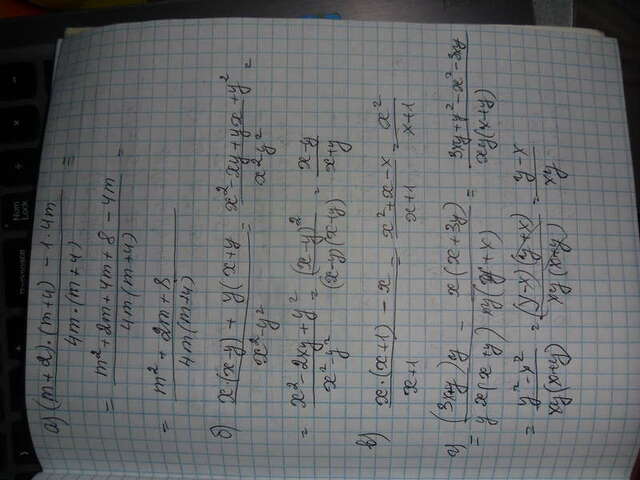 Num Lock
а) ((m+2)·(m+4) - 1·4m)/(4m·(m+4)) =
= (m²+2m+4m+8-4m)/(4m(m+4)) =
= (m²+2m+8)/(4m(m+4))
б) (x·(x-y) + y(x+y)/(x²-y²) = (x²-xy+yx+y²)/(x²-y²) =
= (x²-2xy+y²)/(x²-y²) = (x-y)²/((x-y)(x+y)) = (x-y)/(x+y)
в) (x·(x+1) - x)/(x+1) = (x²+x-x)/(x+1) = x²/(x+1)
г) = ((3x+y)y)/(y x(x+y)) - (x(x+3y))/(xy(y+x)) = (3xy+y²-x²-3xy)/(xy(x+y))
= (y²-x²)/(xy(x+y)) = ((y-x)(y+x))/(xy(x+y)) = (y-x)/(xy)